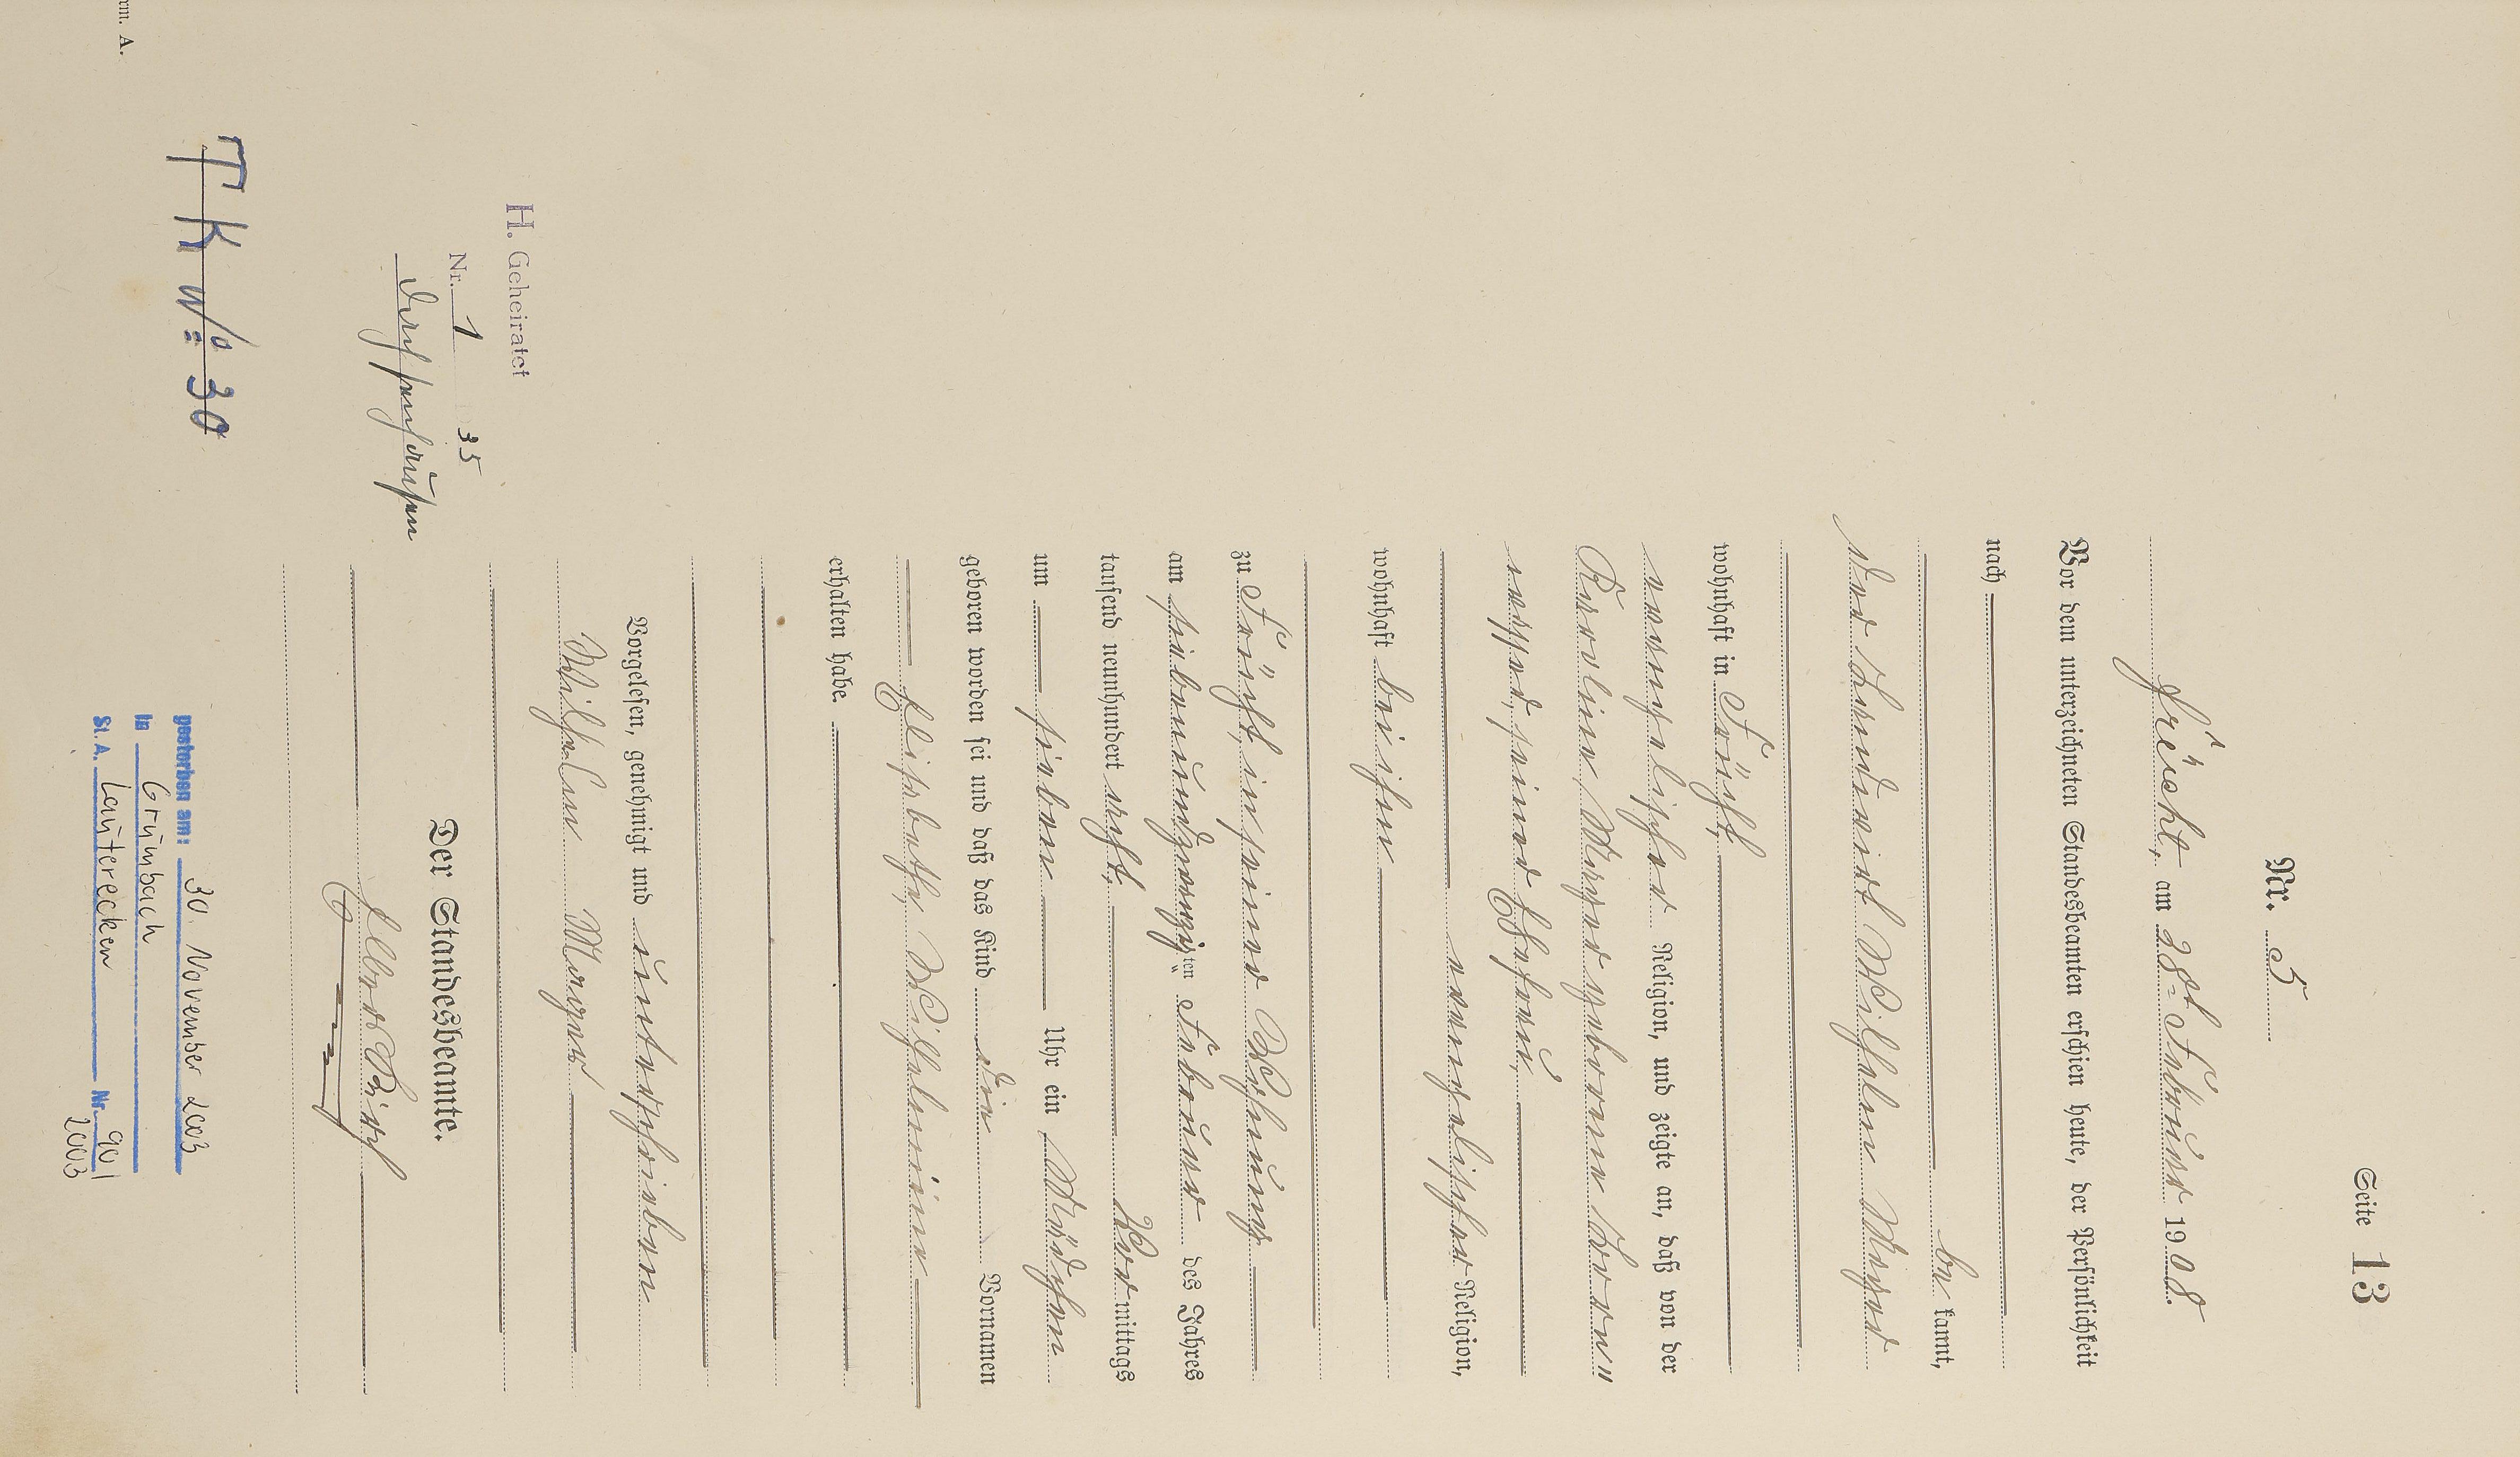 Seite 13
Nr. 5
Frücht, am 28t Februar 1908.
Vor dem unterzeichneten Standesbeamten erschien heute, der Persönlichkeit
nach
be kannt,
der Landwirt Wilhelm Mager
wohnhaft in Frücht,
evangelischer Religion, und zeigte an, daß von der
Karoline Mager geborene
seiner Ehefrau,
evangelischer Religion,
wohnhaft bei ihm
zu Frücht, in seiner Wohnung
am siebenundzwanzigten Februar des Jahres
tausend neunhundert acht, Vormittags
um sieben Uhr ein Mädchen
geboren worden sei und daß das Kind die Vornamen
Elisabeth, Wilhelmine
erhalten habe.
Vorgelesen, genehmigt und unterschrieben
Wilhelm Mager
Der Standesbeamte.
H. Geheiratet
Nr. 1 35
TK No 30
gestorben am: 30. November 2003
in Grumbach
St. A. Lauterecken Nr. 90/
2003
rm. A.